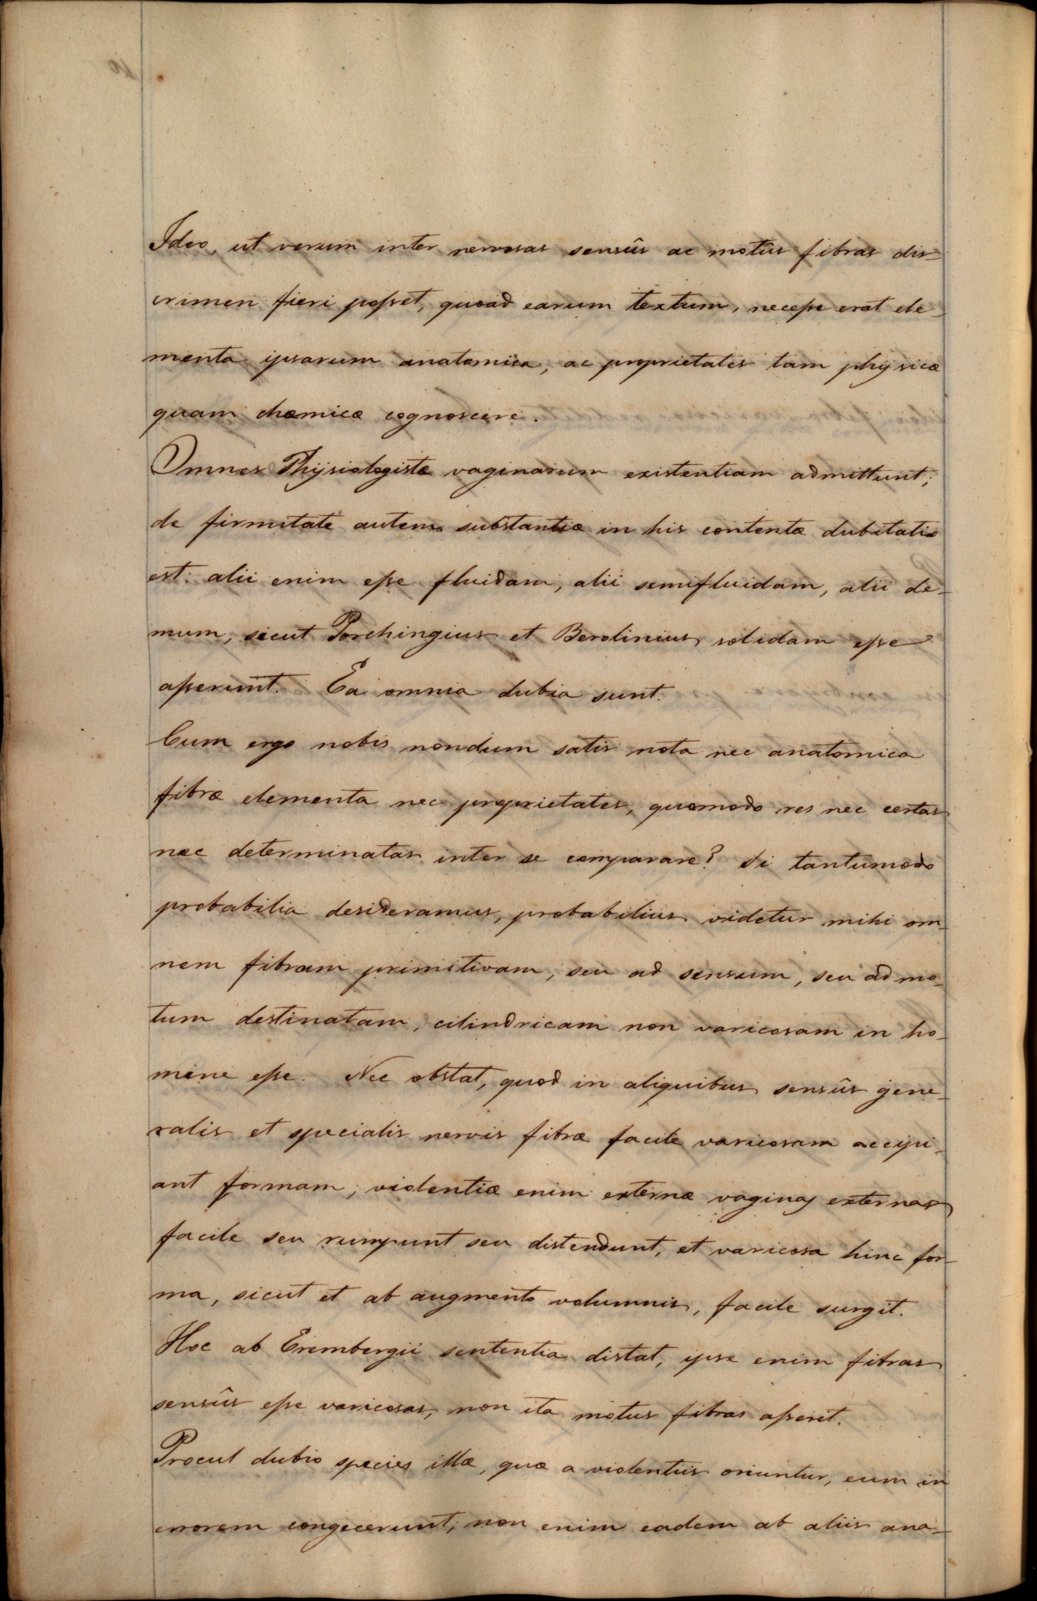 Ideo, ut verum inter nervosas sensûs ac motûs fibras dis-
crimen fieri posset, quoad earum textum, necesse erat ele-
menta ipsarum anatomica, ac proprietates tam physicæ
quam chæmicæ cognoscere.
Omnes Physiologistæ vaginarum existentiam admittunt;
de firmitate autem substantiæ in his contentæ dubitatio
est: alii enim esse fluidam, alii semifluidam, alii de-
mum, sicut Porchingius et Berolinius, solidam esse
asserunt. Ea omnia dubia sunt.
Cum ergo nobis nondum satis nota nec anatomica
fibræ elementa nec proprietates, quomodo res nec certas
nec determinatas inter se comparare? Si tantumodo
probabilia desideramus, probabilius videtur mihi om-
nem fibram primitivam, seu ad sensum, seu ad mo-
tum destinatam, cilindricam non varicosam in ho-
mine esse. Nec obstat, quod in aliquibus sensûs gene-
ralis et specialis nervis fibræ facile varicosam accipi-
ant formam; violentiæ enim externæ vaginas externas
facile seu rumpunt seu distendunt, et varicosa hinc for-
ma, sicut et ab augmento voluminis, facile surgit.
Hoc ab Erembergii sententia distat, ipse enim fibras
sensûs esse varicosas, non ita motus fibras asserit.
Procul dubio species illæ, quæ a violentiis oriuntur, eum in
errorem congecerunt; non enim eadem ab aliis ana-